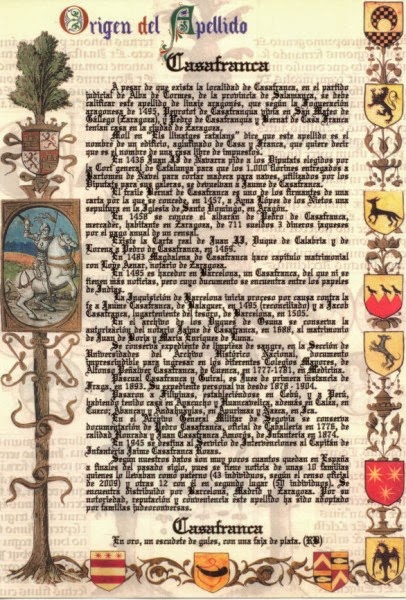 Origen del Apellido
Casafranca
A pesar de que exista la localidad de Casafranca, en el partido
judicial de Alba de Tormes, de la provincia de Salamanca, se debe
calificar este apellido de linaje aragonés, que según la Fogueración
aragonesa de 1495, Perrutot de Casafranqua vivía en San Mateo de
Gállego (Zaragoza), y Pedro de Casafranca y Bernat de Casa Franca
tenían casa en la ciudad de Zaragoza.
Moll en "Els llinatges catalans" dice que este apellido es el
nombre de un edificio, aglutinado de Casa y Franca, que quiere decir
que es el nombre de una casa libre de impuestos.
En 1438 Juan II de Navarra pide a los Diputats elegidos por
el Cort general de Catalunya para que los 1.000 florines entregados a
Pintonen de Navel para cortar madera para naves, utilizados por los
Diputats para sus galeras, se devuelvan a Jaume de Casafranca.
El fraile Bernat de Casafranca es uno de los firmantes de una
carta por la que se concede, en 1457, a Ayna López de los Nietos un
sepultura en la Iglesia de Santo Domingo, en Aragón.
En 1458 se conoce el albarán de Pedro de Casafranca,
mercader, habitante en Zaragoza, de 711 sueldos 3 dineros jaqueses
por el pago anual de un censal.
Existe la Carta real de Juan II, Duque de Calabria y de
Lorena a Pedro de Casafranca, en 1469.
En 1483 Magdalena de Casafranca hace capítulo matrimonial
con Lope Aznar, notario de Zaragoza.
En 1495 es hacedor en Barcelona, un Casafranca, del que ni se
tienen más noticias, pero cuyo documento se encuentra entre los papeles
de Indias.
La Inquisición de Barcelona inicia proceso por causa contra la
fe a Jaime Casafranch, de Balaguer, en 1495 (reconciliado) y a Jacob
Casafranca, lugarteniente del tesoro, de Barcelona, en 1505.
En el archivo de los Duques de Osuna se conserva la
autorización del notario Jaime de Casafranca, en 1488, al matrimonio
de Juan de Borja y María Enríquez de Luna.
Se conserva expediente de limpieza de sangre, en la Sección de
Universidades del Archivo Histórico Nacional, Documento
imprescindible para ingresar en los diferentes Colegios Mayores, de
Alfonso Peñalver Casafranca, de Cuenca, en 1777-1781, en Medicina.
Pascual Casafranca y Guiral, es Juez de primera instancia de
Fraga, en 1893. Su expediente personal va desde 1878 - 1904.
Pasaron a Filipinas, estableciéndose en Cebú, y a Perú,
habiendo tenido casa en Ayacucho y Huancavelica, además en Talca, en
Cuero; Abancay y Andahuaylas, en Apurímac y Nasca, en Ica.
En el Archivo General Militar de Segovia se conserva
documentación de Pedro Casafranca, oficial de Caballería en 1776, de
calidad honrada y Juan Casafranca Amorgós, de Infantería en 1874.
En 1945 se destina al Servicio de Intervenciones al Capitán de
Infantería Jaime Casafranca Rosas.
Según nuestros datos son muy pocos cuantos quedan en España
a finales del pasado siglo, pues se tiene noticia de unas 10 familias
quienes lo llevaban como paterno (43 individuos, según el censo oficial
de 2009) y otras 12 con él en segundo lugar (51 individuos). Se
encuentra distribuido por Barcelona, Madrid y Zaragoza. Por su
notoriedad, reputación y conveniencia este apellido ha sido adoptado
por familias judeoconversas.
Casafranca
En oro, un escudete de gules, con una faja de plata. (RB)